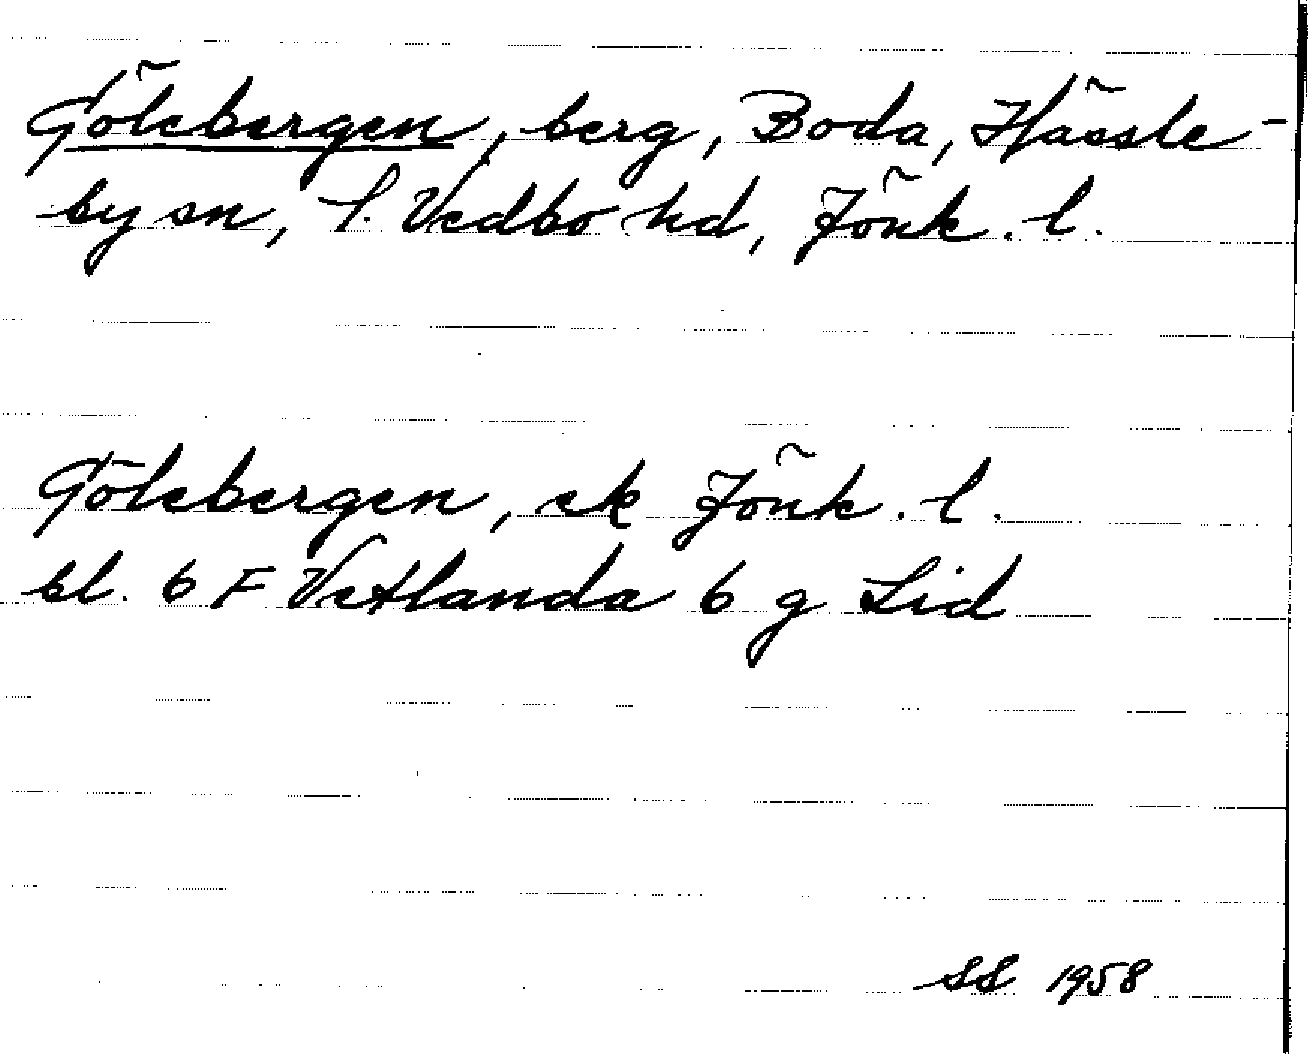 Gölebergen, berg, Boda, Hässle-
by sn, S. Vedbo hd, Jönk. l.
Gölebergen, ek Jönk. l.
bl. 6 F Vetlanda 6 g Lid
SS 1958